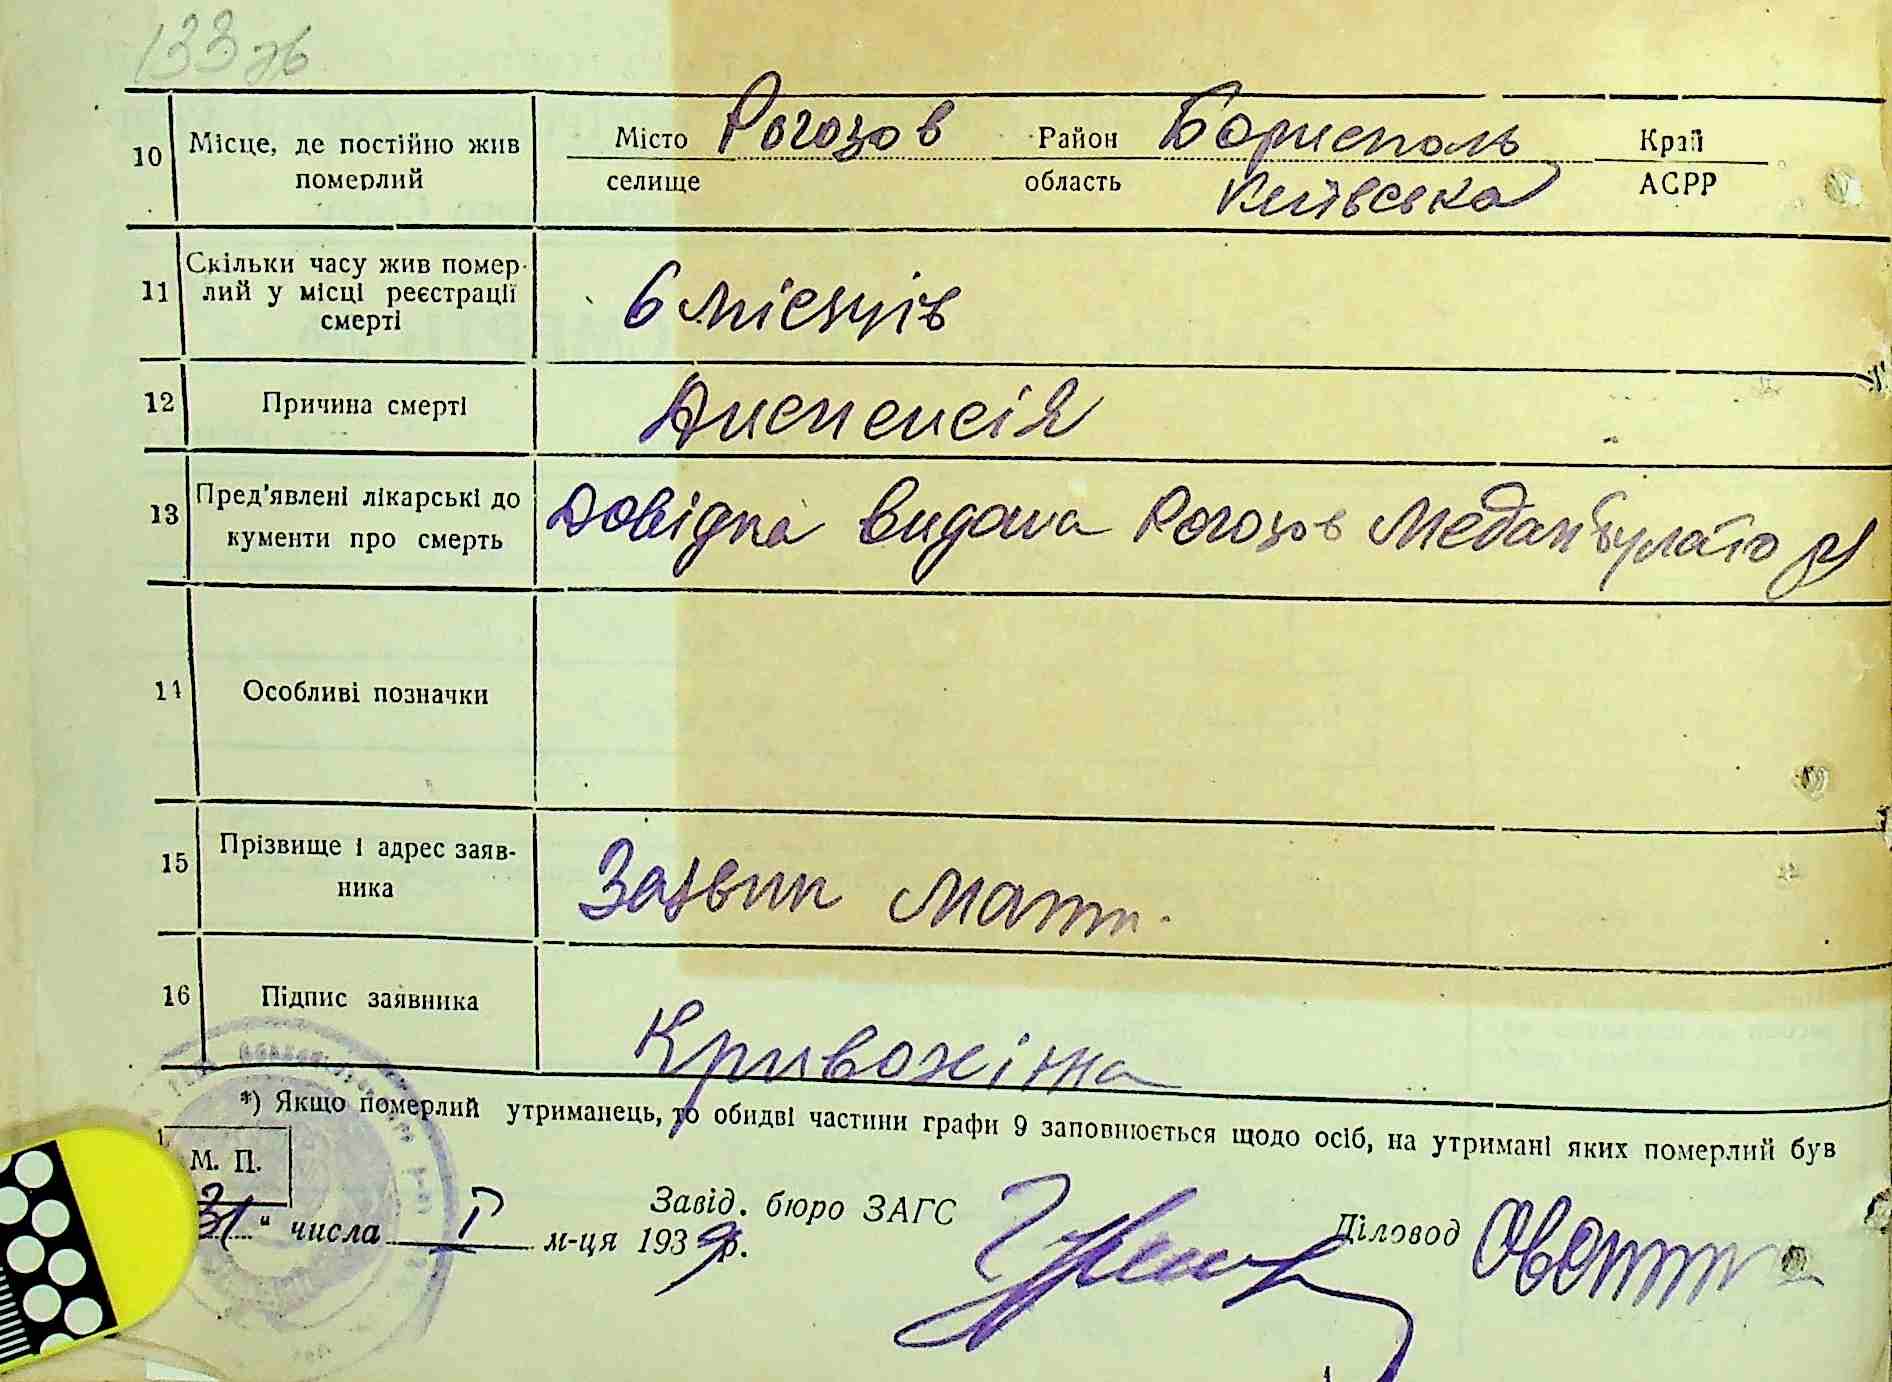 133 зв
10 Місце, де постійно жив померлий Місто селище Рогозов Район область Бориспіль Київська Край АСРР
11 Скільки часу жив помер-
лий у місці реєстрації
смерті
6 місяців
12 Причина смерті Диспепсія
13 Пред'явлені лікарські до
кументи про смерть
Довідка видана Рогозов Медамбулаторі
14 Особливі позначки
15 Прізвище і адрес заяв-
ника
Заявник Мати.
16 Підпис заявника
*) Якщо померлий утриманець, то обидві частини графи 9 заповнюється щодо осіб, на утримані яких померлий був
М. П.
31 " числа I м-ця 1939 р.
Завід. бюро ЗАГС
Діловод